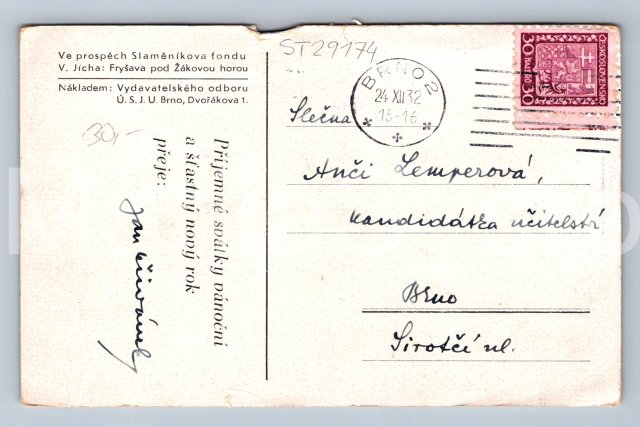 Ve prospěch Slaměníkova fondu
V. Jícha: Fryšava pod Žákovou horou
Nákladem: Vydavatelského odboru
Ú. S. J. U. Brno, Dvořákova 1.
30,-
Příjemné svátky vánoční
a šťastný nový rok
přeje:
Jan
ST29174
BRNO 2
24 XII 32
15-16
ČESKOSLOVENSKO
30 HALÉŘŮ 30
Slečna
Anči Lemperová,
kandidátka učitelství
Brno
Sirotčí ul.